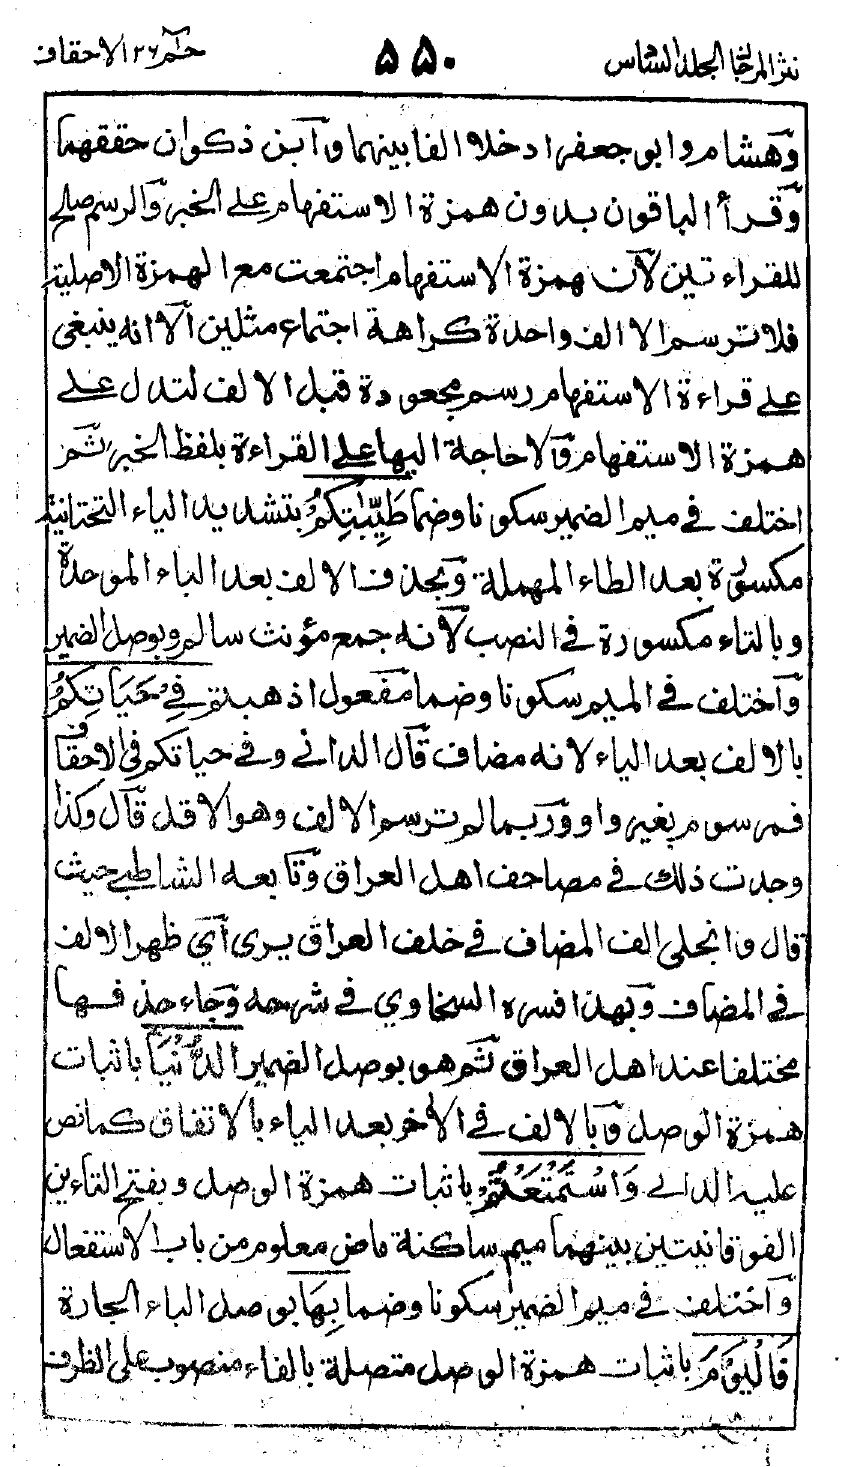 نثر المرجان المجلد السادس ٥٥٠ حٰمٓ ٢٦ الاحقاف
وهشام وابو جعفر ادخلا الفا بينهما وابن ذكوان حققهما
وقرأ الباقون بدون همزة الاستفهام على الخبر والرسم صالح
للقراءتين لان همزة الاستفهام اجتمعت مع الهمزة الاصلية
فلا ترسم الا الف واحدة كراهة اجتماع مثلين الا انه ينبغى
على قراءة الاستفهام رسم مجعودة قبل الالف لتدل على
همزة الاستفهام ولا حاجة اليها على القراءة بلفظ الخبر ثم
اختلف في ميم الضمير سكونا وضما طَيِّبٰتِكُمْ بتشديد الياء التحتانية
مكسورة بعد الطاء المهملة وبحذف الالف بعد الباء الموحدة
وبالتاء مكسورة في النصب لانه جمع مؤنث سالم وبوصل الضمير
واختلف في الميم سكونا وضما مفعول اذهبتم فِي حَيَاتِكُمُ
بالالف بعد الياء لانه مضاف قال الداني وفي حياتكم في الاحقاف
فمرسوم بغير واو وربما لم ترسم الالف وهو الاقل قال وكذا
وجدت ذلك في مصاحف اهل العراق وتابعه الشاطبي حيث
قال وانجلى الف المضاف في خلف العراق يرى أي ظهر الالف
في المضاف وبهذا فسره السخاوي في شرحه وجاء حذفها
مختلفا عند اهل العراق ثم هو بوصل الضمير الدُّنْيَا باثبات
همزة الوصل وبالالف في الأخر بعد الياء بالاتفاق كما نص
عليه الداني وَاسْتَمْتَعْتُمْ باثبات همزة الوصل وبفتح التاءين
الفوقانيتين بينهما ميم ساكنة ماض معلوم من باب الاستفعال
واختلف في ميم الضمير سكونا وضما بِهَا بوصل الباء الجارة
فَالْيَوْمَ باثبات همزة الوصل متصلة بالفاء منصوب على الظرف